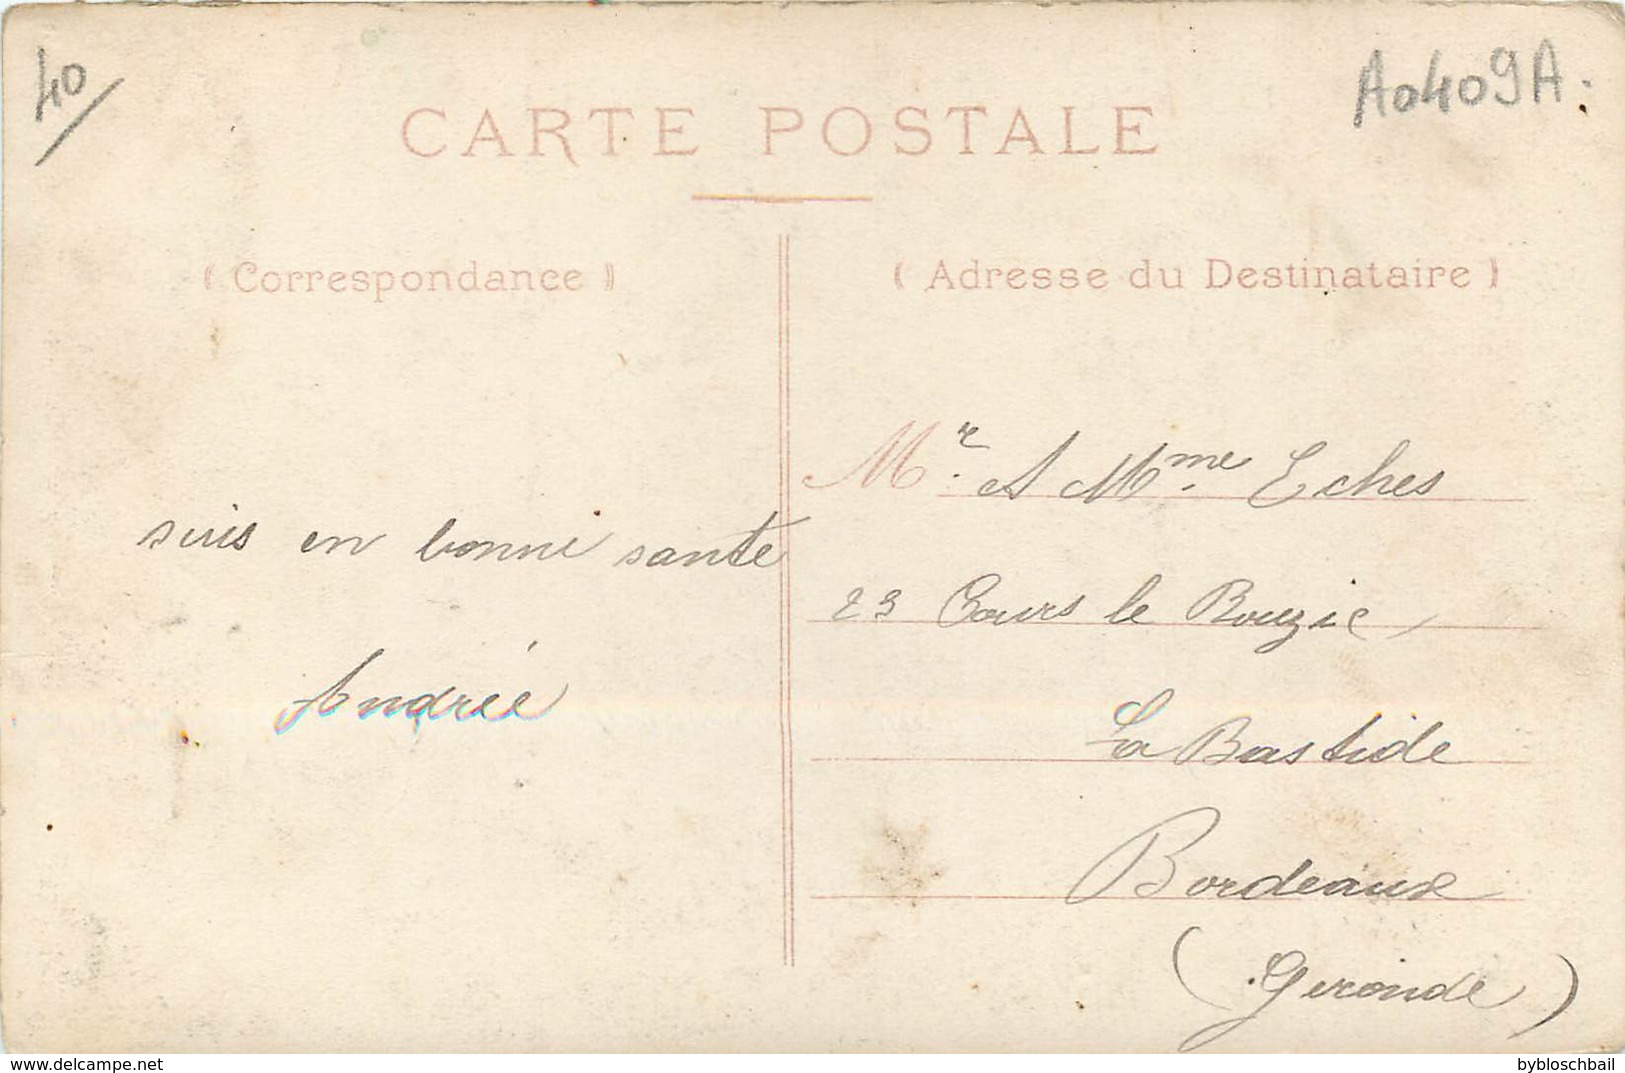 40
A0409A.
CARTE POSTALE
( Correspondance )
( Adresse du Destinataire )
suis en bonne santé
Andrée
Mr. & Mme. Eches
23 Cours le Rouzic
La Bastide
Bordeaux
(Gironde)
https://www.delcampe.net
bybloschbail